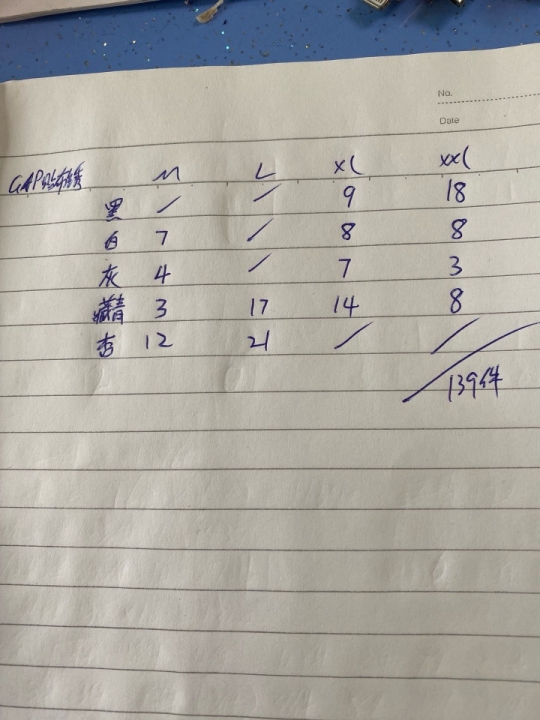 No.
Date
GAP贴布绣 M L XL XXL
黑 / / 9 18
白 7 / 8 8
灰 4 / 7 3
藏青 3 17 14 8
杏 12 21 / /
139件